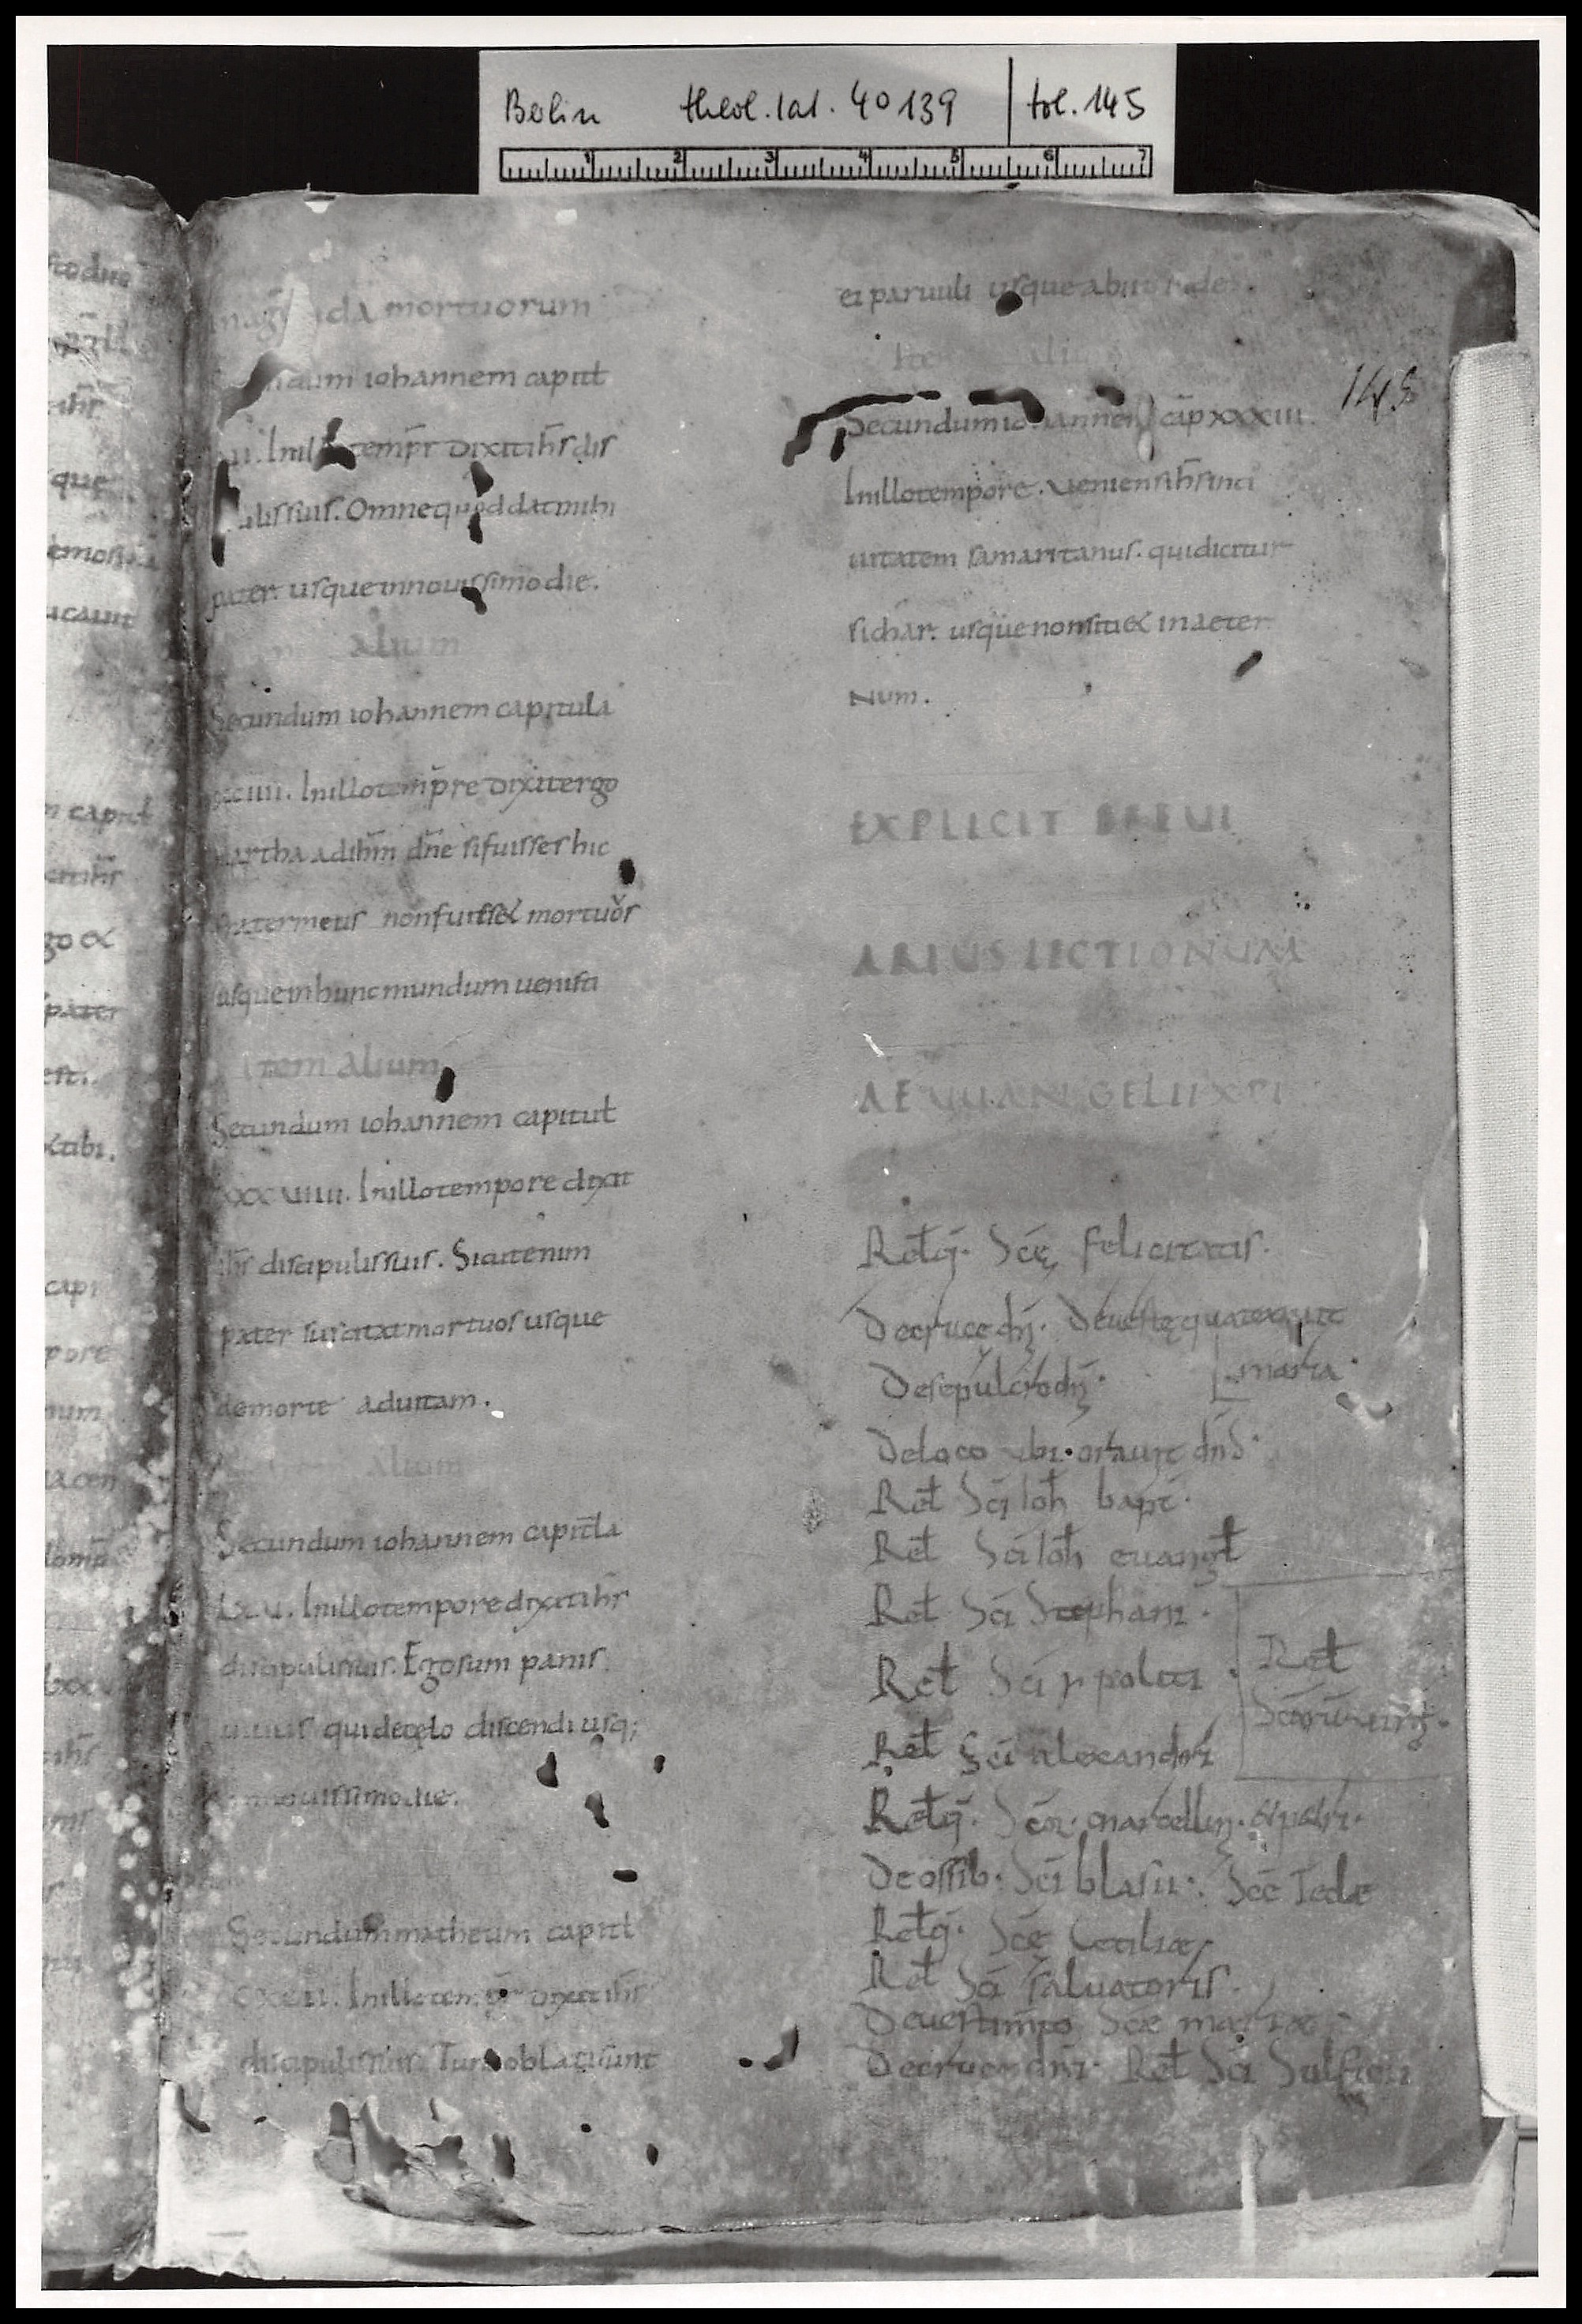 Berlin theol. lat. 4º 139 | fol. 145
1 2 3 4 5 6 7
145
mortuorum
iohannem capitł
Inill temp̄r dixit ih̄s dis
Omne quod dat mihi
pater. usque in nouissimo die.
alium
Secundum iohannem capitula
Inillo temp̄re dixit ergo
martha ad ih̄m dn̄e si fuisses hic
frater meus non fuiss& mortuos
usque in hunc mundum uenisti
Item alium
Secundum iohannem capitul
xxxuiiii. Inillo tempore dixit
ih̄s discipulis suis. Sicut enim
pater suscitat mortuos usque
de morte ad uitam.
alium
Secundum iohannem capitl̄a
Inillo tempore dixit ih̄s
discipulis suis. Ego sum panis
uiuus qui de celo discendi usq;
nouissimo die.
Secundum matheum capitł
Inillo temp̄r dixit ih̄s
discipulis suis. Tunc oblati sunt
ei paruuli usque abiit inde.
Item alium
Secundum iohannem cap̄ xxxiii.
Inillo tempore. ueniens ih̄s in ci
uitatem samaritanus. qui dicitur
sichar. usque non siti& in aeter
num.
EXPLICIT BREUI
ARIUS LECTIONUM
AEUUANGELII XPI
Relq̄. Sc̄ę felicitatis.
De cruce dn̄i. De ueste qua texuit
De sepulcro dn̄i. maria.
De loco ubi ortauit dn̄s.
Reł Sc̄i Ioh̄ bapt̄.
Reł Sc̄i Ioh̄ euangł
Reł Sc̄i Stephani.
Reł Sc̄i ypoliti. Reł
Reł Sc̄i alexandri
Relq̄. Sc̄or. marcellini. & petri.
De ossib. Sc̄i blasii. Sc̄e Tecle
Relq̄. Sc̄ę Ceciliae
Reł Sc̄i saluatoris.
De uestim̄to Sc̄ae mariae
De cruce dn̄i. Reł Sc̄i Sulpicii